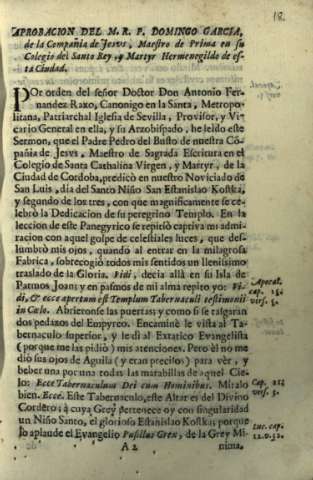 18.
APROBACION DEL M. R. P. DOMINGO GARCIA,
de la Compañia de Jesvs, Maestro de Prima en su
Colegio del Santo Rey, y Martyr Hermenegildo de es-
ta Ciudad.
POr orden del señor Doctor Don Antonio Fer-
nandez Raxo, Canonigo en la Santa, Metropo-
litana, Patriarchal Iglesia de Sevilla, Provisor, y Vi-
cario General en ella, y su Arzobispado, he leido este
Sermon, que el Padre Pedro del Busto de nuestra Cõ-
pañia de Jesvs, Maestro de Sagrada Escritura en el
Colegio de Santa Cathalina Virgen, y Martyr, de la
Ciudad de Cordoba, predicò en nuestro Noviciado de
San Luis, dia del Santo Niño San Estanislao Kostka,
y segundo de los tres, con que magnificamente se ce-
lebrò la Dedicacion de su peregrino Templo. En la
leccion de este Panegyrico se repitiò captiva mi ad-
miracion con aquel golpe de celestiales luces, que des-
lumbrò mis ojos, quando al entrar en la milagrosa
Fabrica, sobrecogiò todos mis sentidos un llenissimo
traslado de la Gloria. Vidi, decia allà en su Isla de
Patmos Joan; y en pasmos de mi alma repito yo: Vi-
di, & ecce apertum est Templum Tabernaculi testimonii
in Cœlo. Abrieronse las puertas; y como si se rasgaran
dos pedazos del Empyreo. Encaminè la vista al Ta-
bernaculo superior, y le dì al Extatico Evangelista
(porque me las pidiò) mis atenciones. Pero èl no me
diò sus ojos de Aguila (y eran precisos) para vèr, y
beber una por una todas las marabillas de aquel Cie-
lo: Ecce Tabernaculum Dei cum Hominibus. Miralo
bien. Ecce. Este Tabernaculo, este Altar es del Divino
Cordero; à cuya Grey pertenece oy con singularidad
un Niño Santo, el glorioso Estanislao Kostka; porque
lo aplaude el Evangelio Pusillus Grex, de la Grey Mi-
A 2
nima,
Apocal.
cap. 15.
vers. 5.
Cap. 21.
vers. 3.
Luc. cap.
12. v. 32.